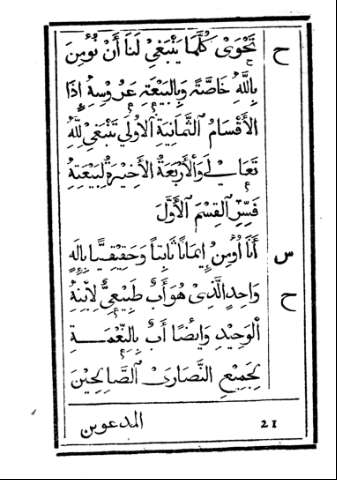 ح تَحْوَىْ كُلَّمَا يَنْبَغِيْ لَنَا أَنْ نُوْمِنَ
بِاللّٰهِ خَاصَّتَه وَبِالبَيْعَتِهِ عَرُوْسِهِ إِذًا
الأَقْسَامُ الثَّمَانِيَةِ الأُوْلَي تَنْبَغِيْ لِلّٰهِ
تَعَالَيْ وَالأَرْبَعَةُ الأَخِيْرَةُ لِبَيْعَتِهِ
فَسِّرِ القِسْمَ الأَوَّلَ
س أَنَا أُوْمِنُ إِيْمَانًا ثَابِتاً وَحَقِيْقِيًّا بِإِلَهٍ
ح وَاحِدٍ الَّذِىْ هُوَ أَبٌ طَبِيْعِيٌّ لِابْنِهِ
الوَحِيْدِ وَايْضًا أَبٌ بِالنِّعْمَــةِ
لِجَمِيْعِ النَّصَارَىْ الصَّالِحِيْنَ
المدعوين 21